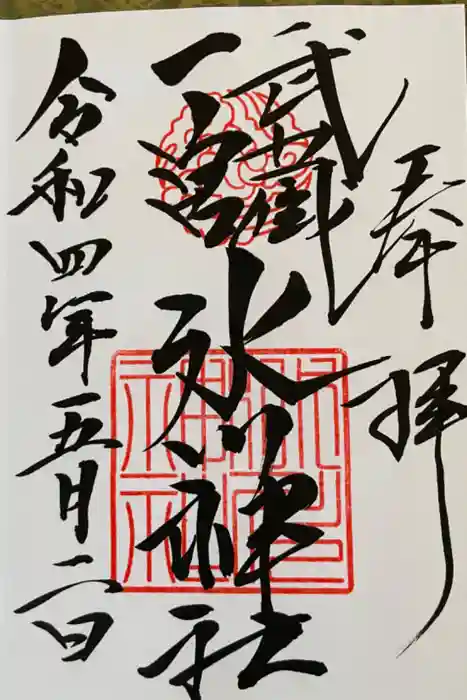 奉拝
武蔵
一宮
氷川神社
令和四年五月二日
氷川
神社